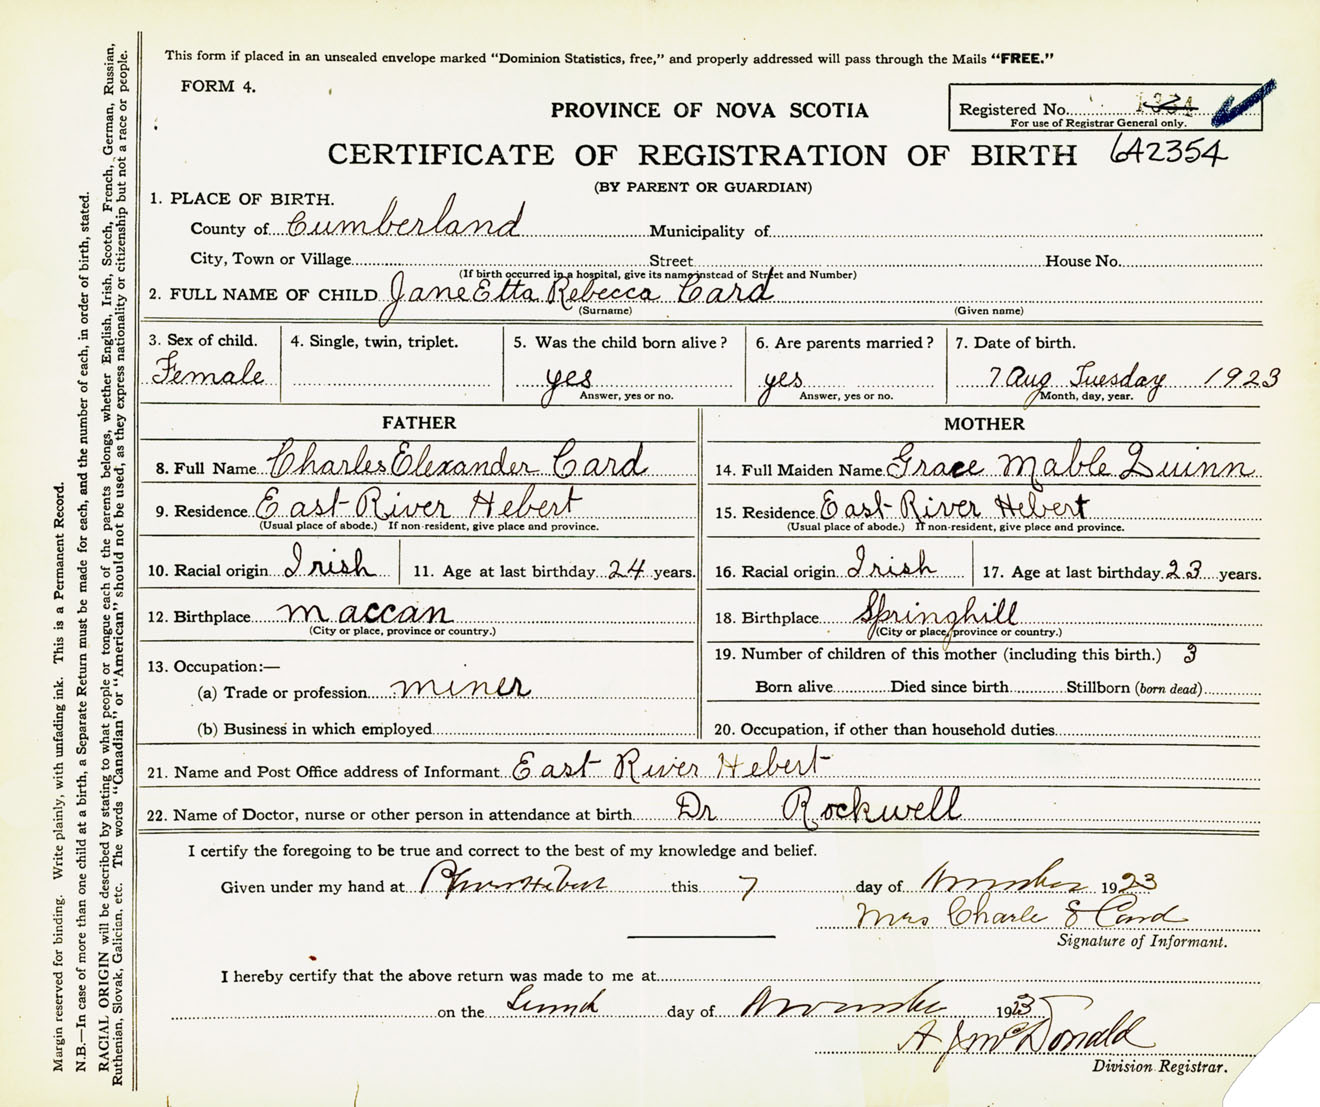 This form if placed in an unsealed envelope marked "Dominion Statistics, free," and properly addressed will pass through the Mails "FREE."
FORM 4.
PROVINCE OF NOVA SCOTIA
Registered No.
For use of Registrar General only.
CERTIFICATE OF REGISTRATION OF BIRTH 642354
(BY PARENT OR GUARDIAN)
1. PLACE OF BIRTH.
County of Cumberland Municipality of
City, Town or Village Street House No.
(If birth occurred in a hospital, give its name instead of Street and Number)
2. FULL NAME OF CHILD Jane Etta Rebecca Card
(Surname) (Given name)
3. Sex of child. 4. Single, twin, triplet. 5. Was the child born alive? 6. Are parents married? 7. Date of birth.
Female yes yes 7 Aug Tuesday 1923
Answer, yes or no. Answer, yes or no. Month, day, year.
FATHER MOTHER
8. Full Name Charles Elexander Card 14. Full Maiden Name Grace Mable Quinn
9. Residence East River Hebert 15. Residence East River Hebert
(Usual place of abode.) If non-resident, give place and province. (Usual place of abode.) If non-resident, give place and province.
10. Racial origin Irish 11. Age at last birthday 24 years. 16. Racial origin Irish 17. Age at last birthday 23 years.
12. Birthplace Maccan 18. Birthplace Springhill
(City or place, province or country.) (City or place, province or country.)
13. Occupation:— 19. Number of children of this mother (including this birth.) 3
(a) Trade or profession miner Born alive Died since birth Stillborn (born dead)
(b) Business in which employed 20. Occupation, if other than household duties
21. Name and Post Office address of Informant East River Hebert
22. Name of Doctor, nurse or other person in attendance at birth Dr Rockwell
I certify the foregoing to be true and correct to the best of my knowledge and belief.
Given under my hand at River Hebert this 7 day of November 1923
Mrs Charle E Card
Signature of Informant.
I hereby certify that the above return was made to me at
on the day of November 1923
A J McDonald
Division Registrar.
Margin reserved for binding. Write plainly, with unfading ink. This is a Permanent Record.
N.B.—In case of more than one child at a birth, a Separate Return must be made for each, and the number of each, in order of birth, stated.
RACIAL ORIGIN will be described by stating to what people or tongue each of the parents belongs, whether English, Irish, Scotch, French, German, Russian,
Ruthenian, Slovak, Galician, etc. The words "Canadian" or "American" should not be used, as they express nationality or citizenship but not a race or people.